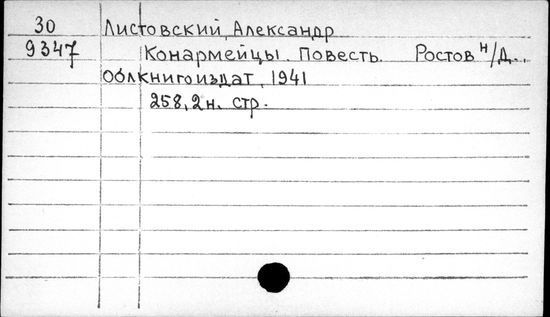 30 Листовский, Александр
9347 Конармейцы. Повесть. Ростов н/Д.,
Облкнигоиздат, 1941
258, 2 н. стр.